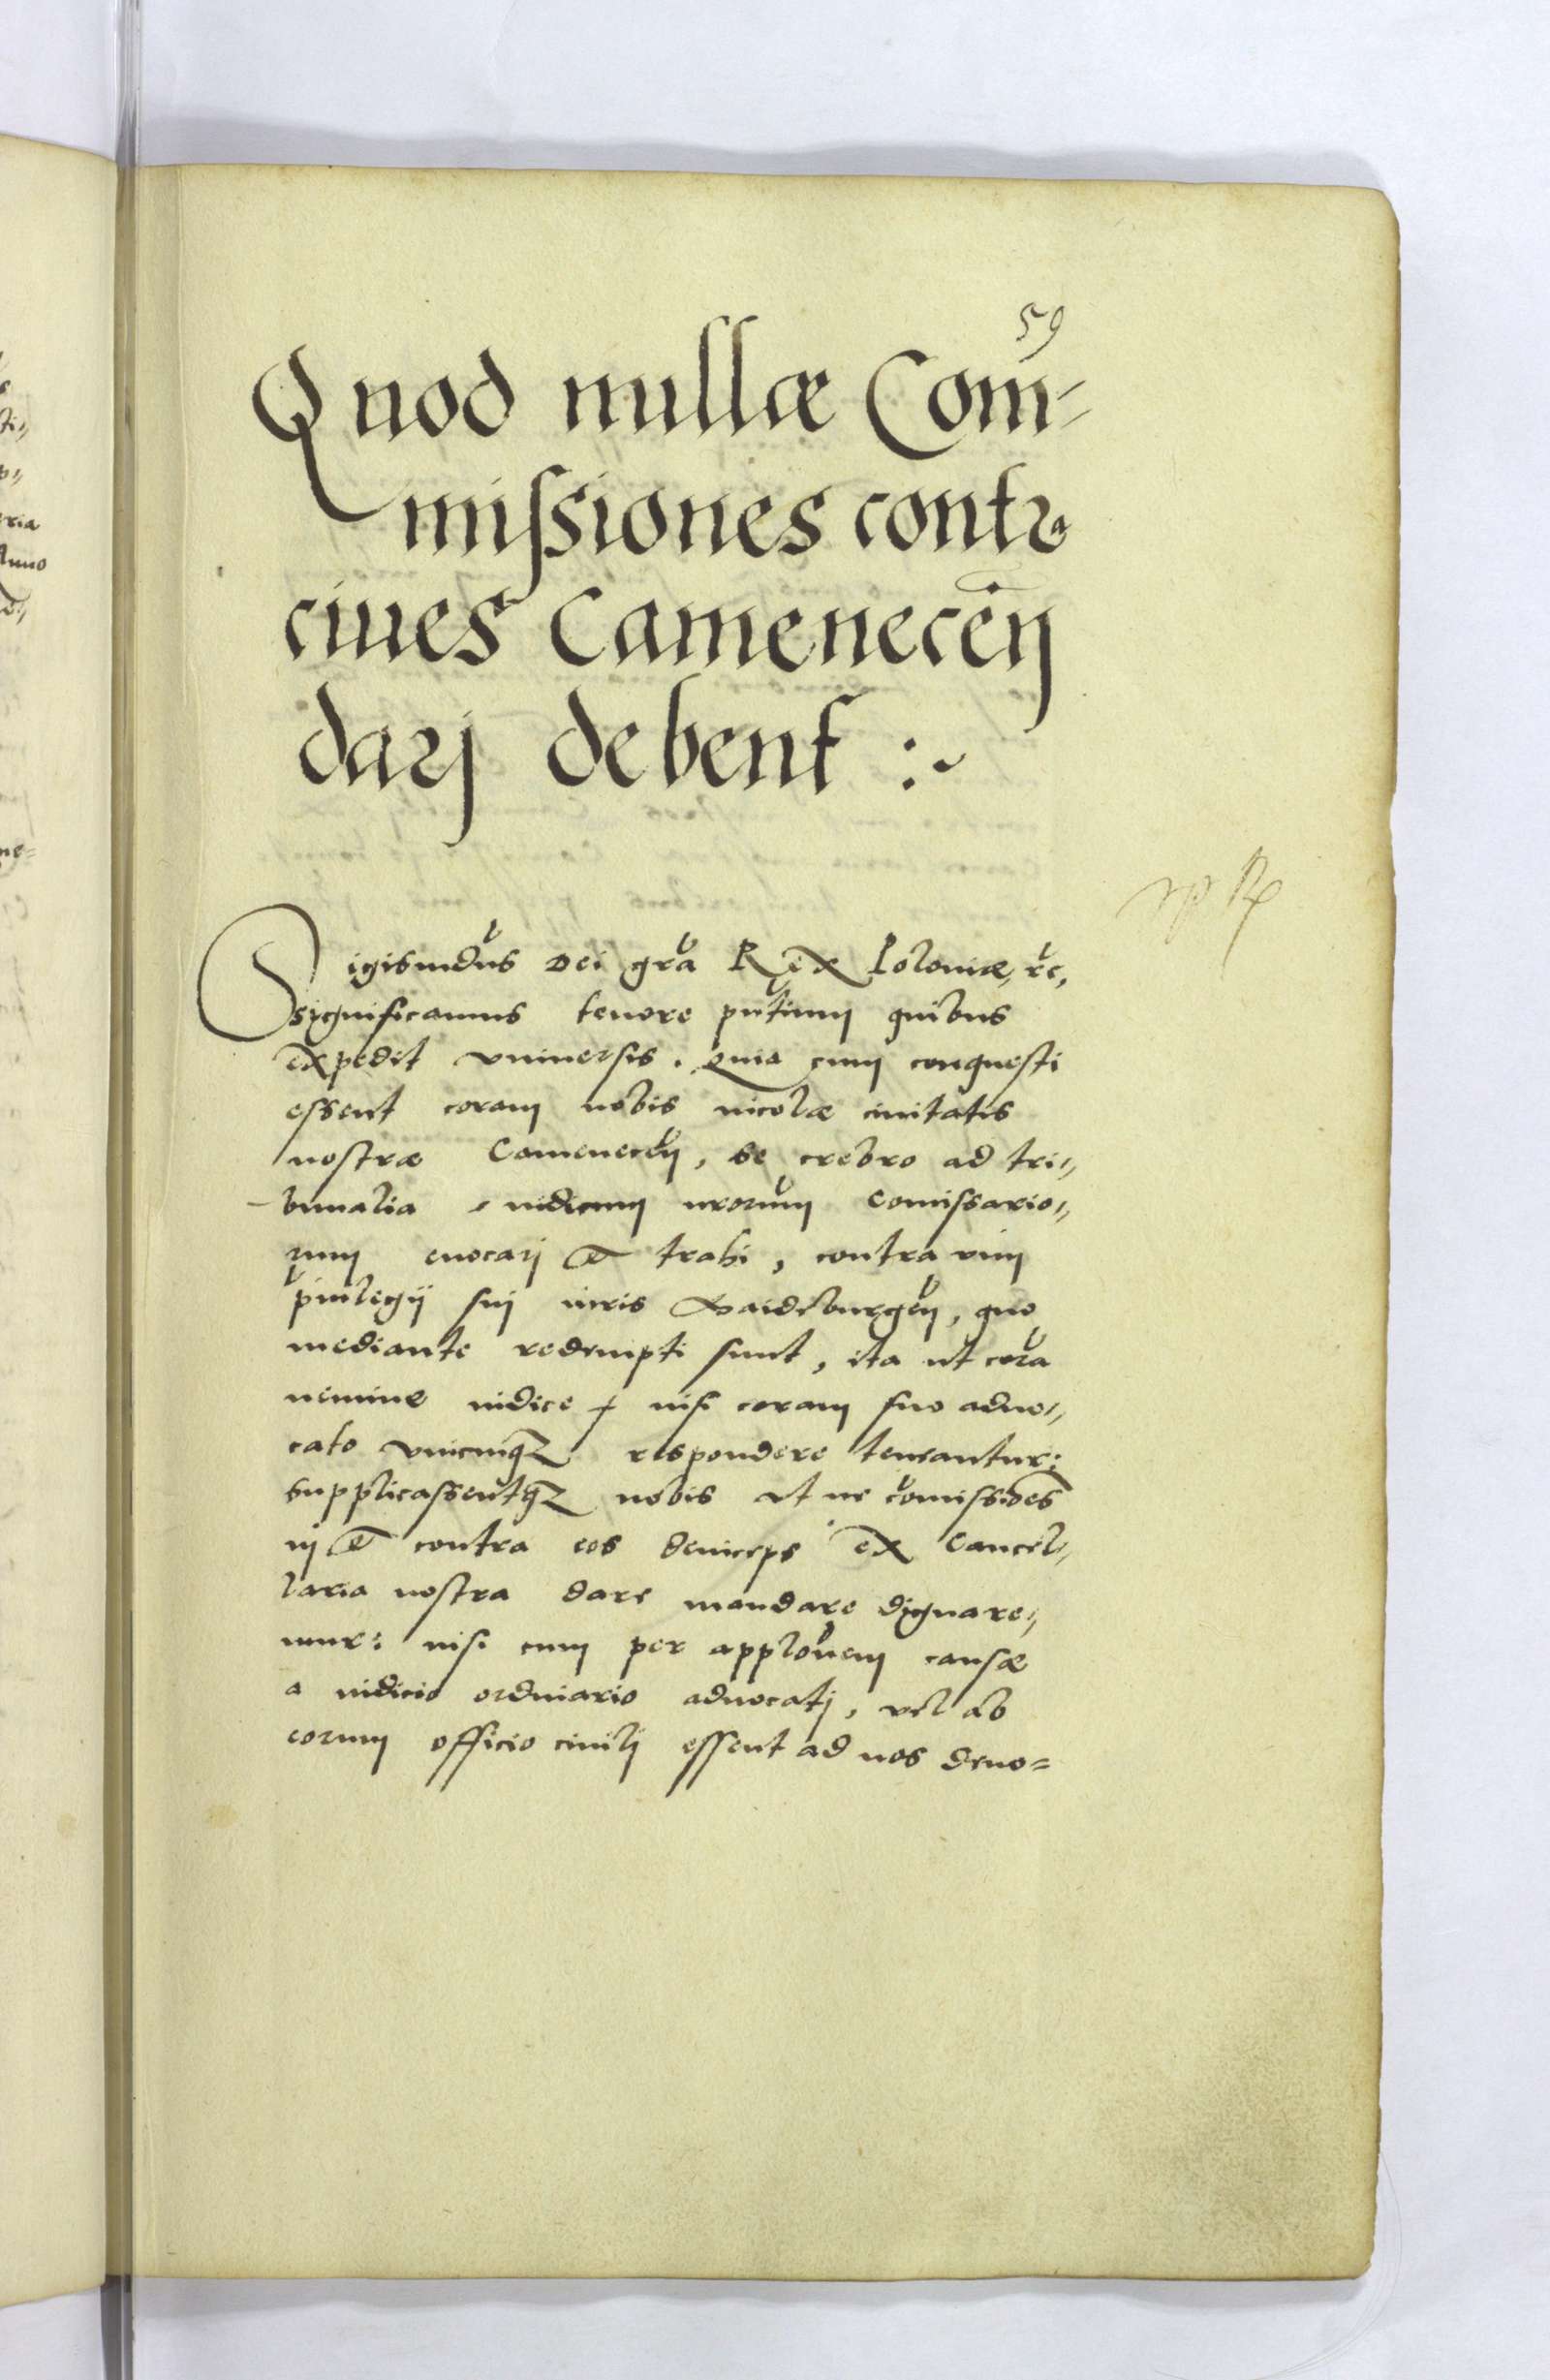 59
Quod nullæ Com-
missiones contra
ciues Camenecen̄
darj debent :~
Sigismūdus Dei gr̄a Rex Poloniæ, ꝛc,
significamus tenore pn̄tium quibus
expedit vniuersis. Quia cum conquesti
essent coram nobis incolæ ciuitatis
nostræ Camenecen̄, se crebro ad tri„
bunalia iudicum nr̄orum Comissario„
rum euocarj et trahi, contra vim
priuilegij suj iuris Maideburgen̄, quo
mediante redempti sunt, ita ut corā
nemine iudice nisi coram suo aduo„
cato vnicuiqꝫ respondere teneantur:
supplicassentqꝫ nobis ut ne comissiōes
in et contra eos deinceps ex Cancel„
laria nostra dare mandare dignare„
mur: nisi cum per applōnem causæ
a iudicio ordinario aduocatj, vel ab
eorum officio ciuilj essent ad nos deuo=